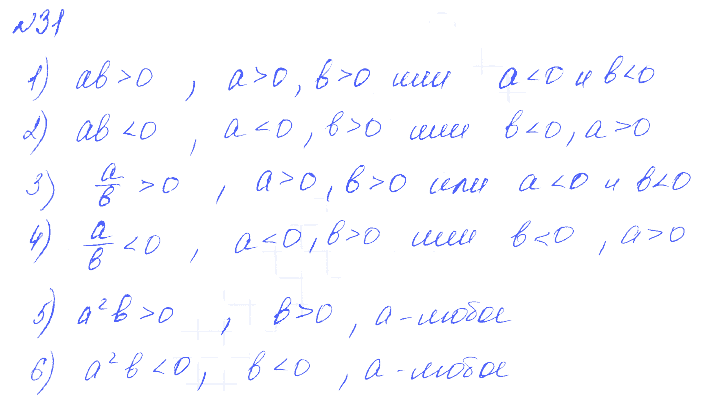 №31
1) ab>0 , a>0, b>0 или a<0 и b<0
2) ab<0 , a<0, b>0 или b<0, a>0
3) a/b >0 , a>0, b>0 или a<0 и b<0
4) a/b <0 , a<0, b>0 или b<0 , a>0
5) a²b>0 , b>0 , a-любое
6) a²b<0, b<0 , a-любое